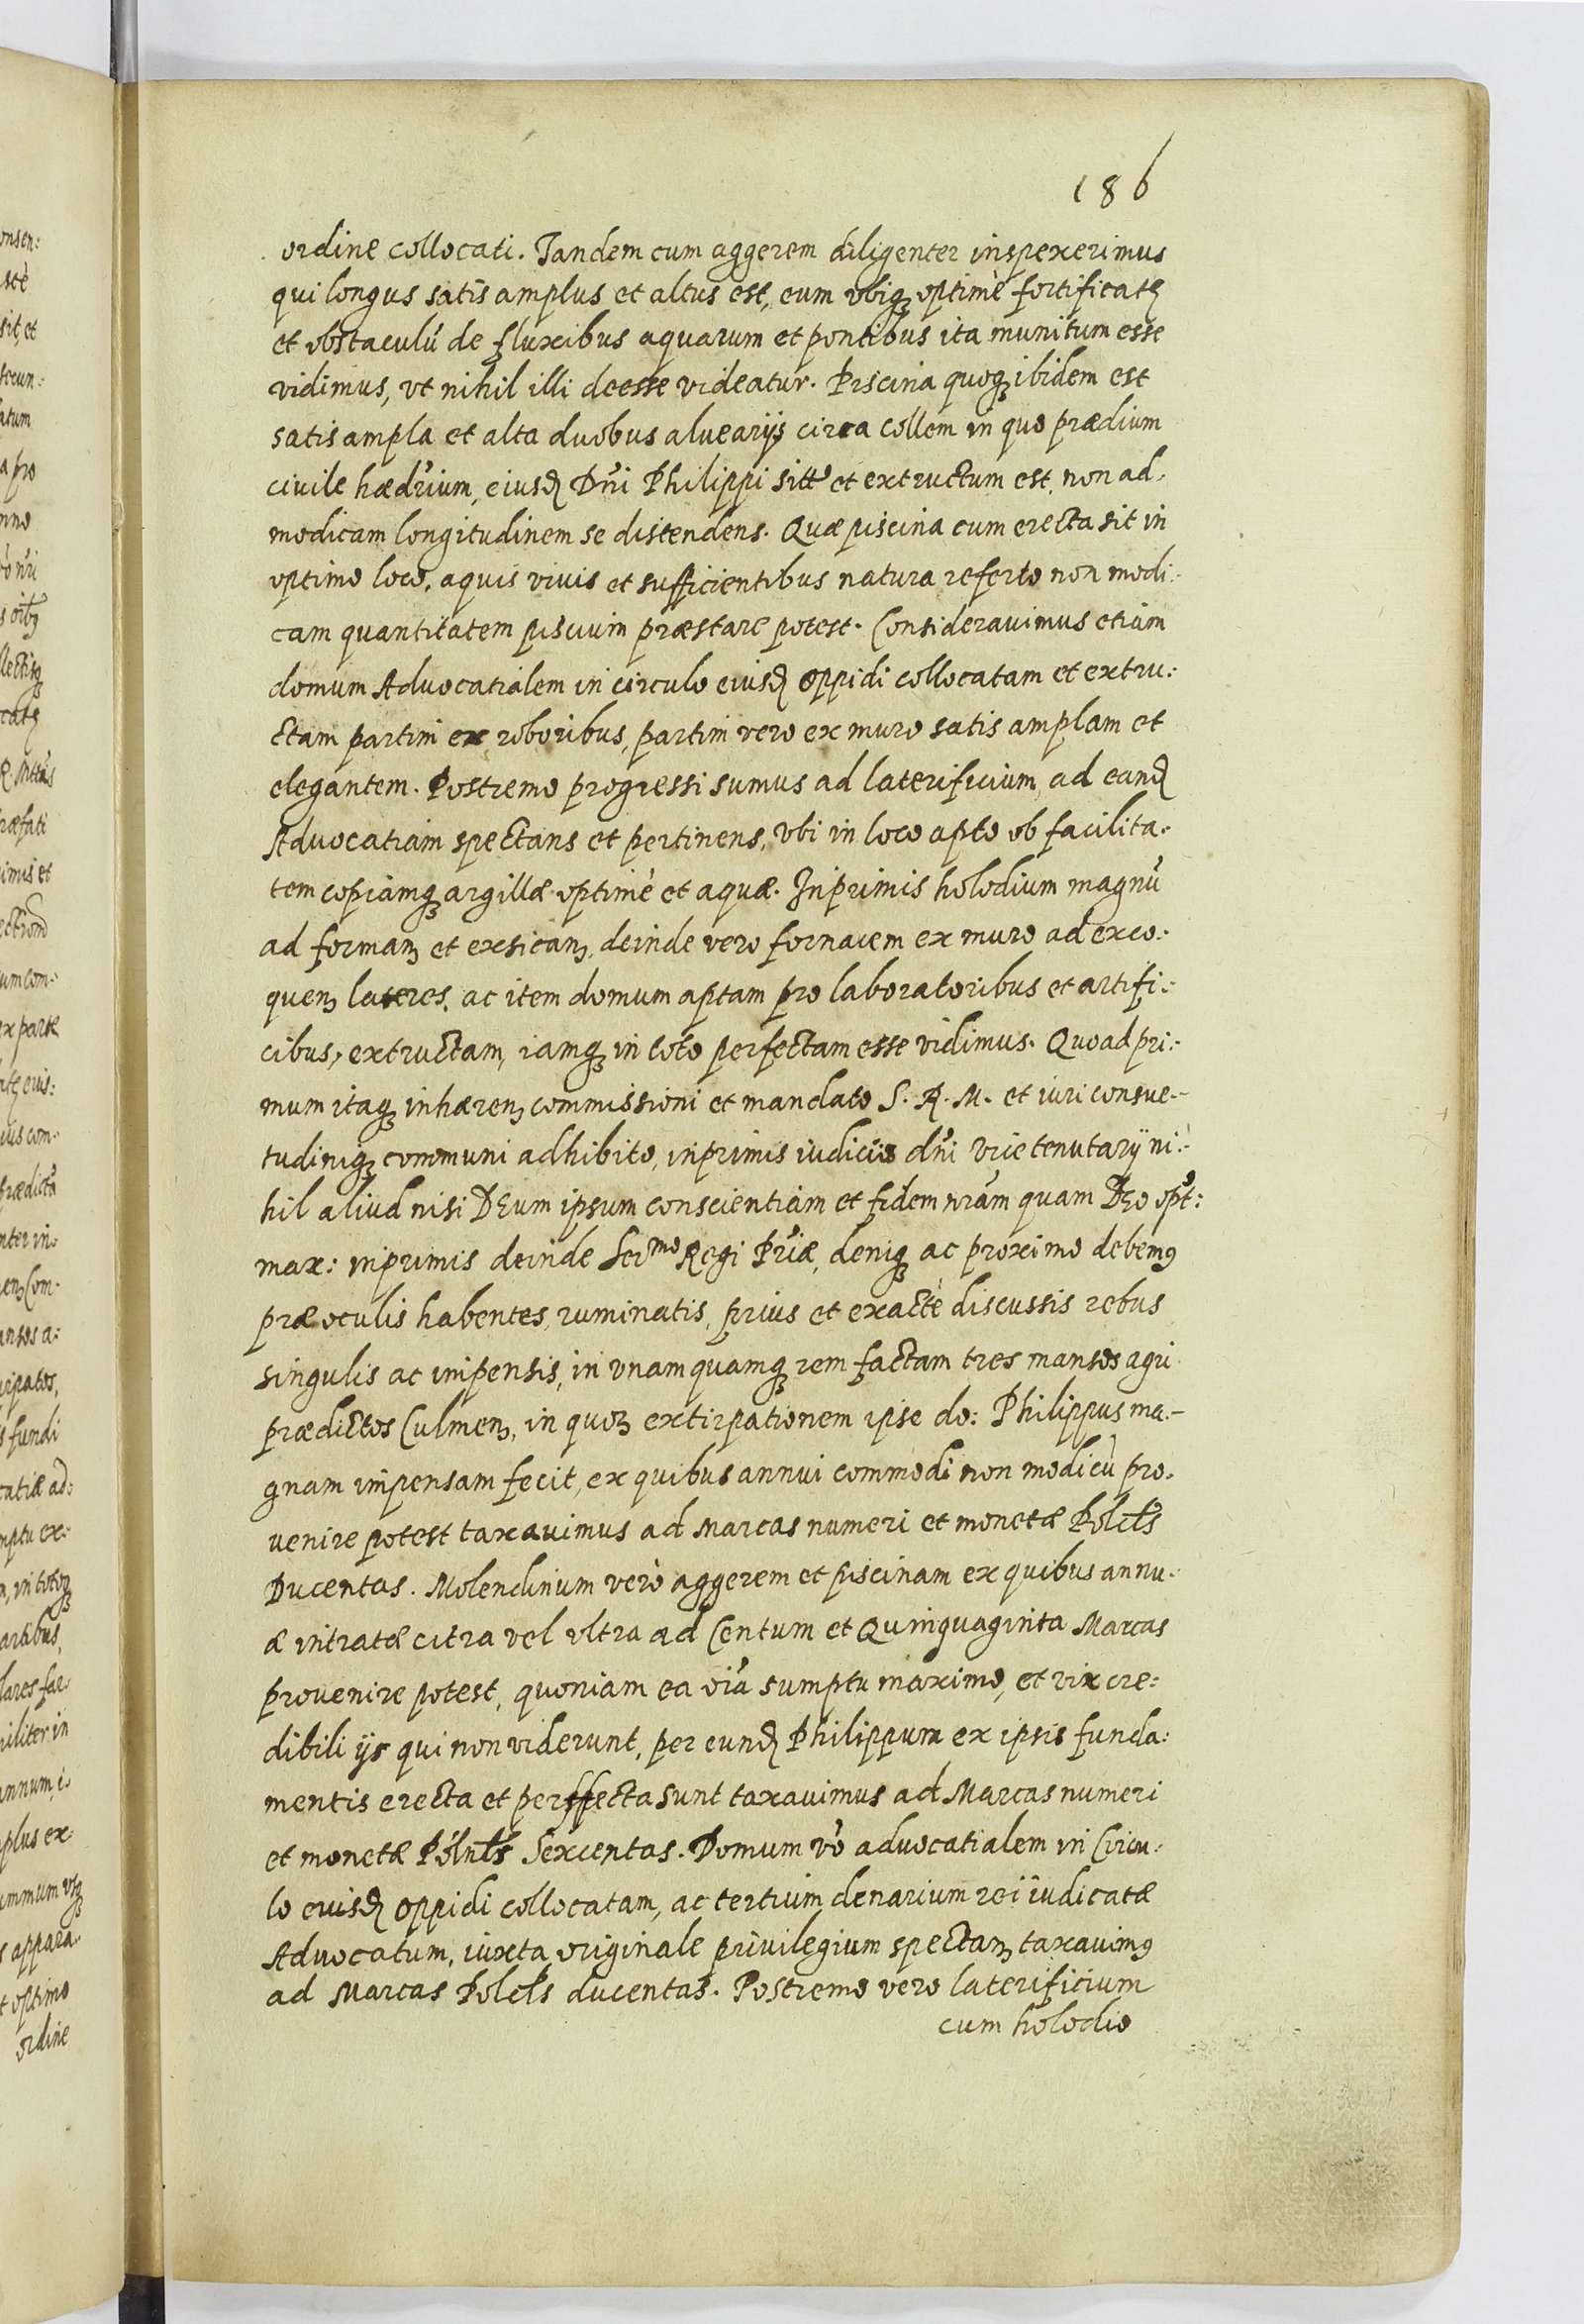 186
ordine collocati. Tandem cum aggerem diligenter inspexerimus
qui longus satis amplus et altus est, eum ubiqꝫ optimè fortificatꝫ
et obstaculũ de fluxibus aquarum et pontibus ita munitum esse
vidimus, vt nihil illi deesse videatur. Piscina quoqꝫ ibidem est
satis ampla et alta duobus aluearijs circa collem in quo prædium
civile hædrium, eiusđ Dñi Philippi sitt̃ et extructum est, non ad
modicam longitudinem se distendens. Quæ piscina cum erecta sit in
optimo loco, aquis vivis et sufficientibus natura referto non modi:
cam quantitatem piscium præstare potest. Consideravimus etiam
domum Advocatialem in circulo eiusđ oppidi collocatam et extru:
ctam partim ex roboribus, partim vero ex muro satis amplam et
elegantem. Postremo progressi sumus ad laterificium, ad eanđ
Advocatiam spectans et pertinens, vbi in loco apto ob facilita:
tem copiamqꝫ argillæ optimè et aquæ. Inprimis holodium magnũ
ad formanꝫ et exsicanꝫ, deinde vero fornacem ex muro ad exco:
quenꝫ lateres, ac item domum aptam pro laboratoribus et artifi:
cibus, extructam, iamqꝫ in toto perfectam esse vidimus. Quoad pri:
mum itaqꝫ inhærenꝫ commissioni et mandato S. R. M. et iuri consue-
tudiniqꝫ communi adhibito, inprimis iudicio dñi vice tenutarij ni:
hil aliud nisi DEum ipsum conscientiam et fidem nr̃am quam DEo opt̃:
max: inprimis deinde Ser̃mo Regi Pr̃iæ, deniqꝫ ac proximo debemꝰ
præ oculis habentes, ruminatis, prius et exactè discussis rebus
singulis ac impensis, in vnamquamqꝫ rem factam tres mansos agri
prædictos Culmenꝫ, in quoꝝ extirpationem ipse do: Philippus ma-
gnam impensam fecit, ex quibus annui commodi non modicũ pro
uenire potest taxauimus ad Marcas numeri et monetæ Polclꝭ
Ducentas. Molendinum verò aggerem et piscinam ex quibus annu
æ intratæ citra vel vltra ad Centum et Quinquaginta Marcas
provenire potest, quoniam ea oĩa sumptu maximo, et vix cre:
dibili ijs qui non viderunt, per eunđ Philippum ex ipsis funda:
mentis erecta et perffecta sunt taxauimus ad Marcas numeri
et monetæ Polnlꝭ Sexcentas. Domum vo̊ advocatialem in Circu:
lo eiusđ oppidi collocatam, ac tertium denarium rei iudicatæ
Advocatum, iuxta originale privilegium spectanꝫ taxavimꝰ
ad Marcas Polclꝭ ducentas. Postremo vero laterificium
cum holodio